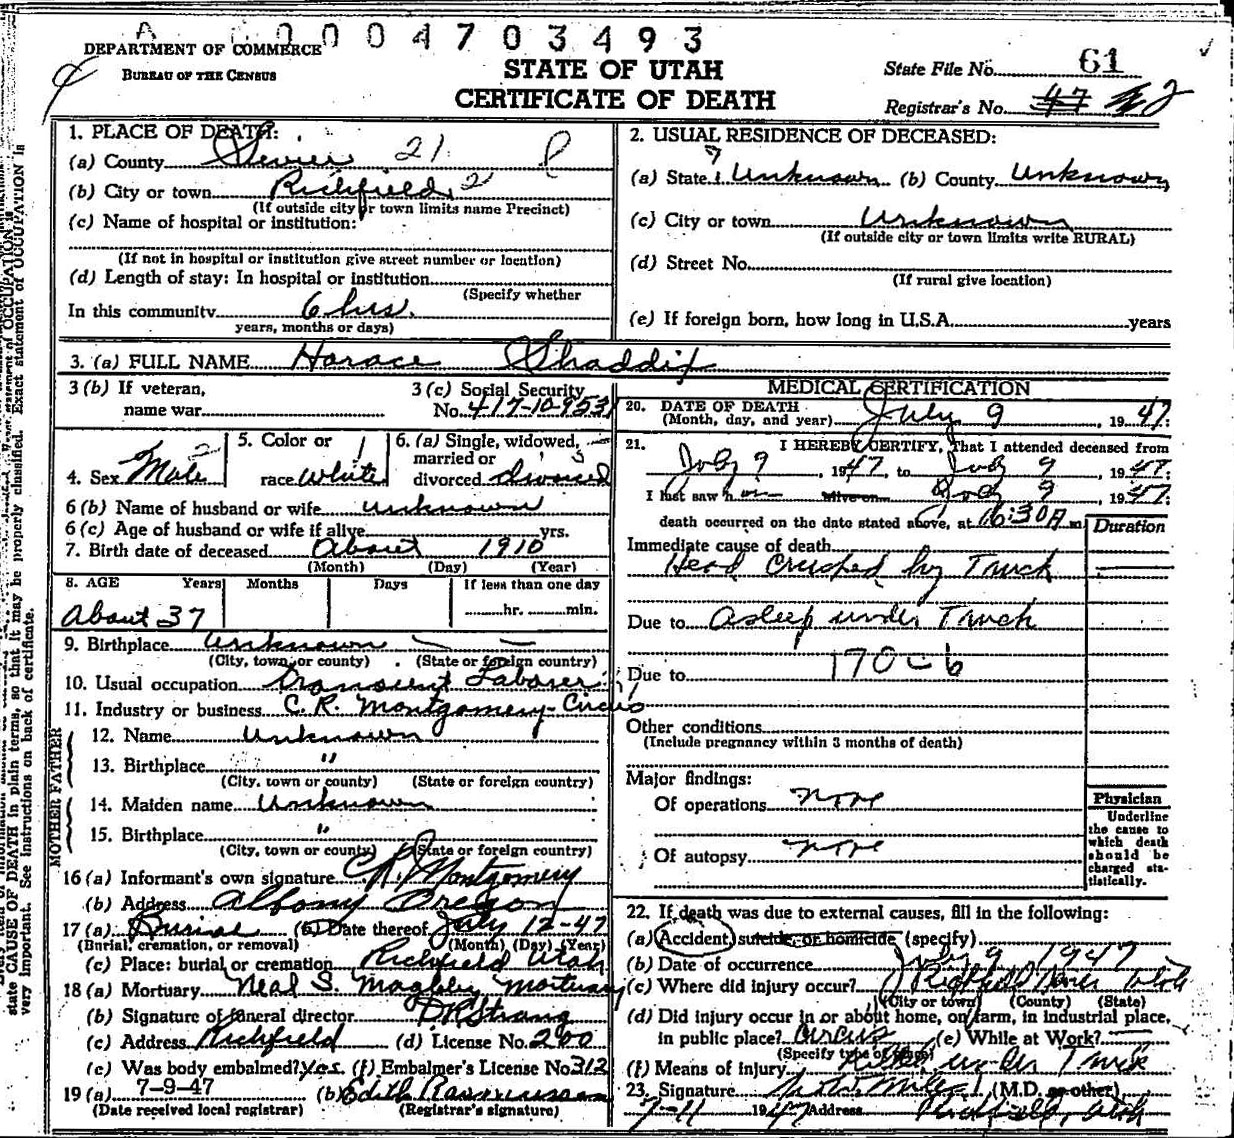 A 0004703493
DEPARTMENT OF COMMERCE
BUREAU OF THE CENSUS
STATE OF UTAH
CERTIFICATE OF DEATH
State File No. 61
Registrar's No. 47
1. PLACE OF DEATH:
(a) County Sevier 21
(b) City or town Richfield, 2
(If outside city or town limits name Precinct)
(c) Name of hospital or institution:
(If not in hospital or institution give street number or location)
(d) Length of stay: In hospital or institution
(Specify whether
In this community 6 hrs.
years, months or days)
2. USUAL RESIDENCE OF DECEASED:
(a) State Unknown (b) County Unknown
(c) City or town Unknown
(If outside city or town limits write RURAL)
(d) Street No.
(If rural give location)
(e) If foreign born, how long in U.S.A. years
3. (a) FULL NAME Horace Shaddix
3 (b) If veteran,
name war
3 (c) Social Security
No. 417-10-9531
4. Sex Male
5. Color or
race White
6. (a) Single, widowed,
married or
divorced divorced
6 (b) Name of husband or wife unknown
6 (c) Age of husband or wife if alive yrs.
7. Birth date of deceased About 1910
(Month) (Day) (Year)
8. AGE Years Months Days If less than one day
About 37 hr. min.
9. Birthplace Unknown
(City, town, or county) (State or foreign country)
10. Usual occupation Transient Laborer
11. Industry or business C.R. Montgomery-Circus
FATHER
12. Name Unknown
13. Birthplace "
(City, town or county) (State or foreign country)
MOTHER
14. Maiden name Unknown
15. Birthplace "
(City, town or county) (State or foreign country)
16 (a) Informant's own signature C R Montgomery
(b) Address Albany Oregon
17 (a) Burial (b) Date thereof July 12-47
(Burial, cremation, or removal) (Month) (Day) (Year)
(c) Place: burial or cremation Richfield Utah
18 (a) Mortuary Neal S. Magleby Mortuary
(b) Signature of funeral director
(c) Address Richfield (d) License No. 200
(e) Was body embalmed? Yes. (f) Embalmer's License No. 312
19 (a) 7-9-47 (b) Edith Rasmussen
(Date received local registrar) (Registrar's signature)
MEDICAL CERTIFICATION
20. DATE OF DEATH
(Month, day, and year) July 9, 1947
21. I HEREBY CERTIFY, That I attended deceased from
July 9, 1947, to July 9, 1947.
I last saw h alive on July 9, 1947.
death occurred on the date stated above, at 6:30 A m
Duration
Immediate cause of death
Head Crushed by Truck
Due to asleep under Truck
Due to 170-c-6
Other conditions
(Include pregnancy within 3 months of death)
Major findings:
Of operations none
Of autopsy none
Physician
Underline
the cause to
which death
should be
charged sta-
tistically.
22. If death was due to external causes, fill in the following:
(a) Accident, suicide, or homicide (specify)
(b) Date of occurrence July 9 1947
(c) Where did injury occur? Richfield Sevier Utah
(City or town) (County) (State)
(d) Did injury occur in or about home, on farm, in industrial place,
in public place? Circus (e) While at Work?
(Specify type of place)
(f) Means of injury under Truck
23. Signature (M.D. or other)
7-11 1947 Address Richfield, Utah
state CAUSE OF DEATH in plain terms, so that it may be properly classified. Exact statement of OCCUPATION is
very important. See instructions on back of certificate.